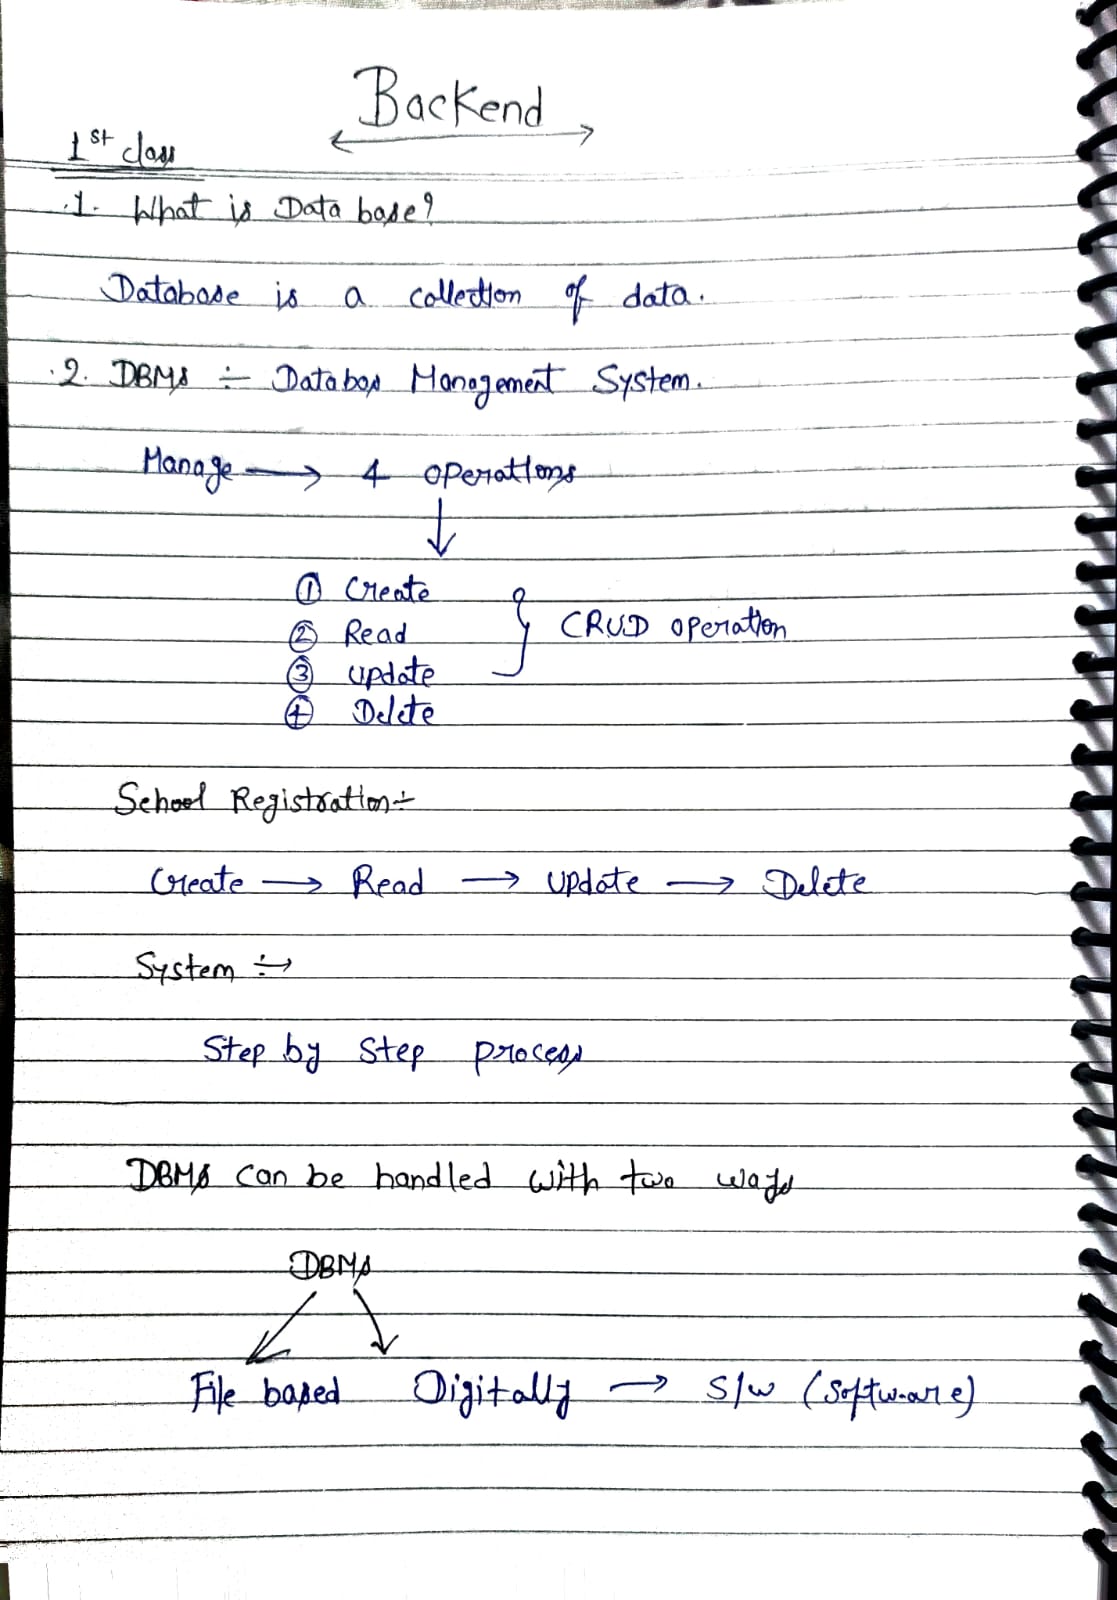 Backend
1st class
1. What is Data base?
Database is a collection of data.
2. DBMS ÷ Databas Management System.
Manage → 4 operations
↓
① Create
② Read
} CRUD operation
③ update
④ Delete
School Registration ÷
Create → Read → update → Delete
System ÷→
Step by Step process
DBMS can be handled with two ways
DBMS
File based Digitally → S/w (Software)